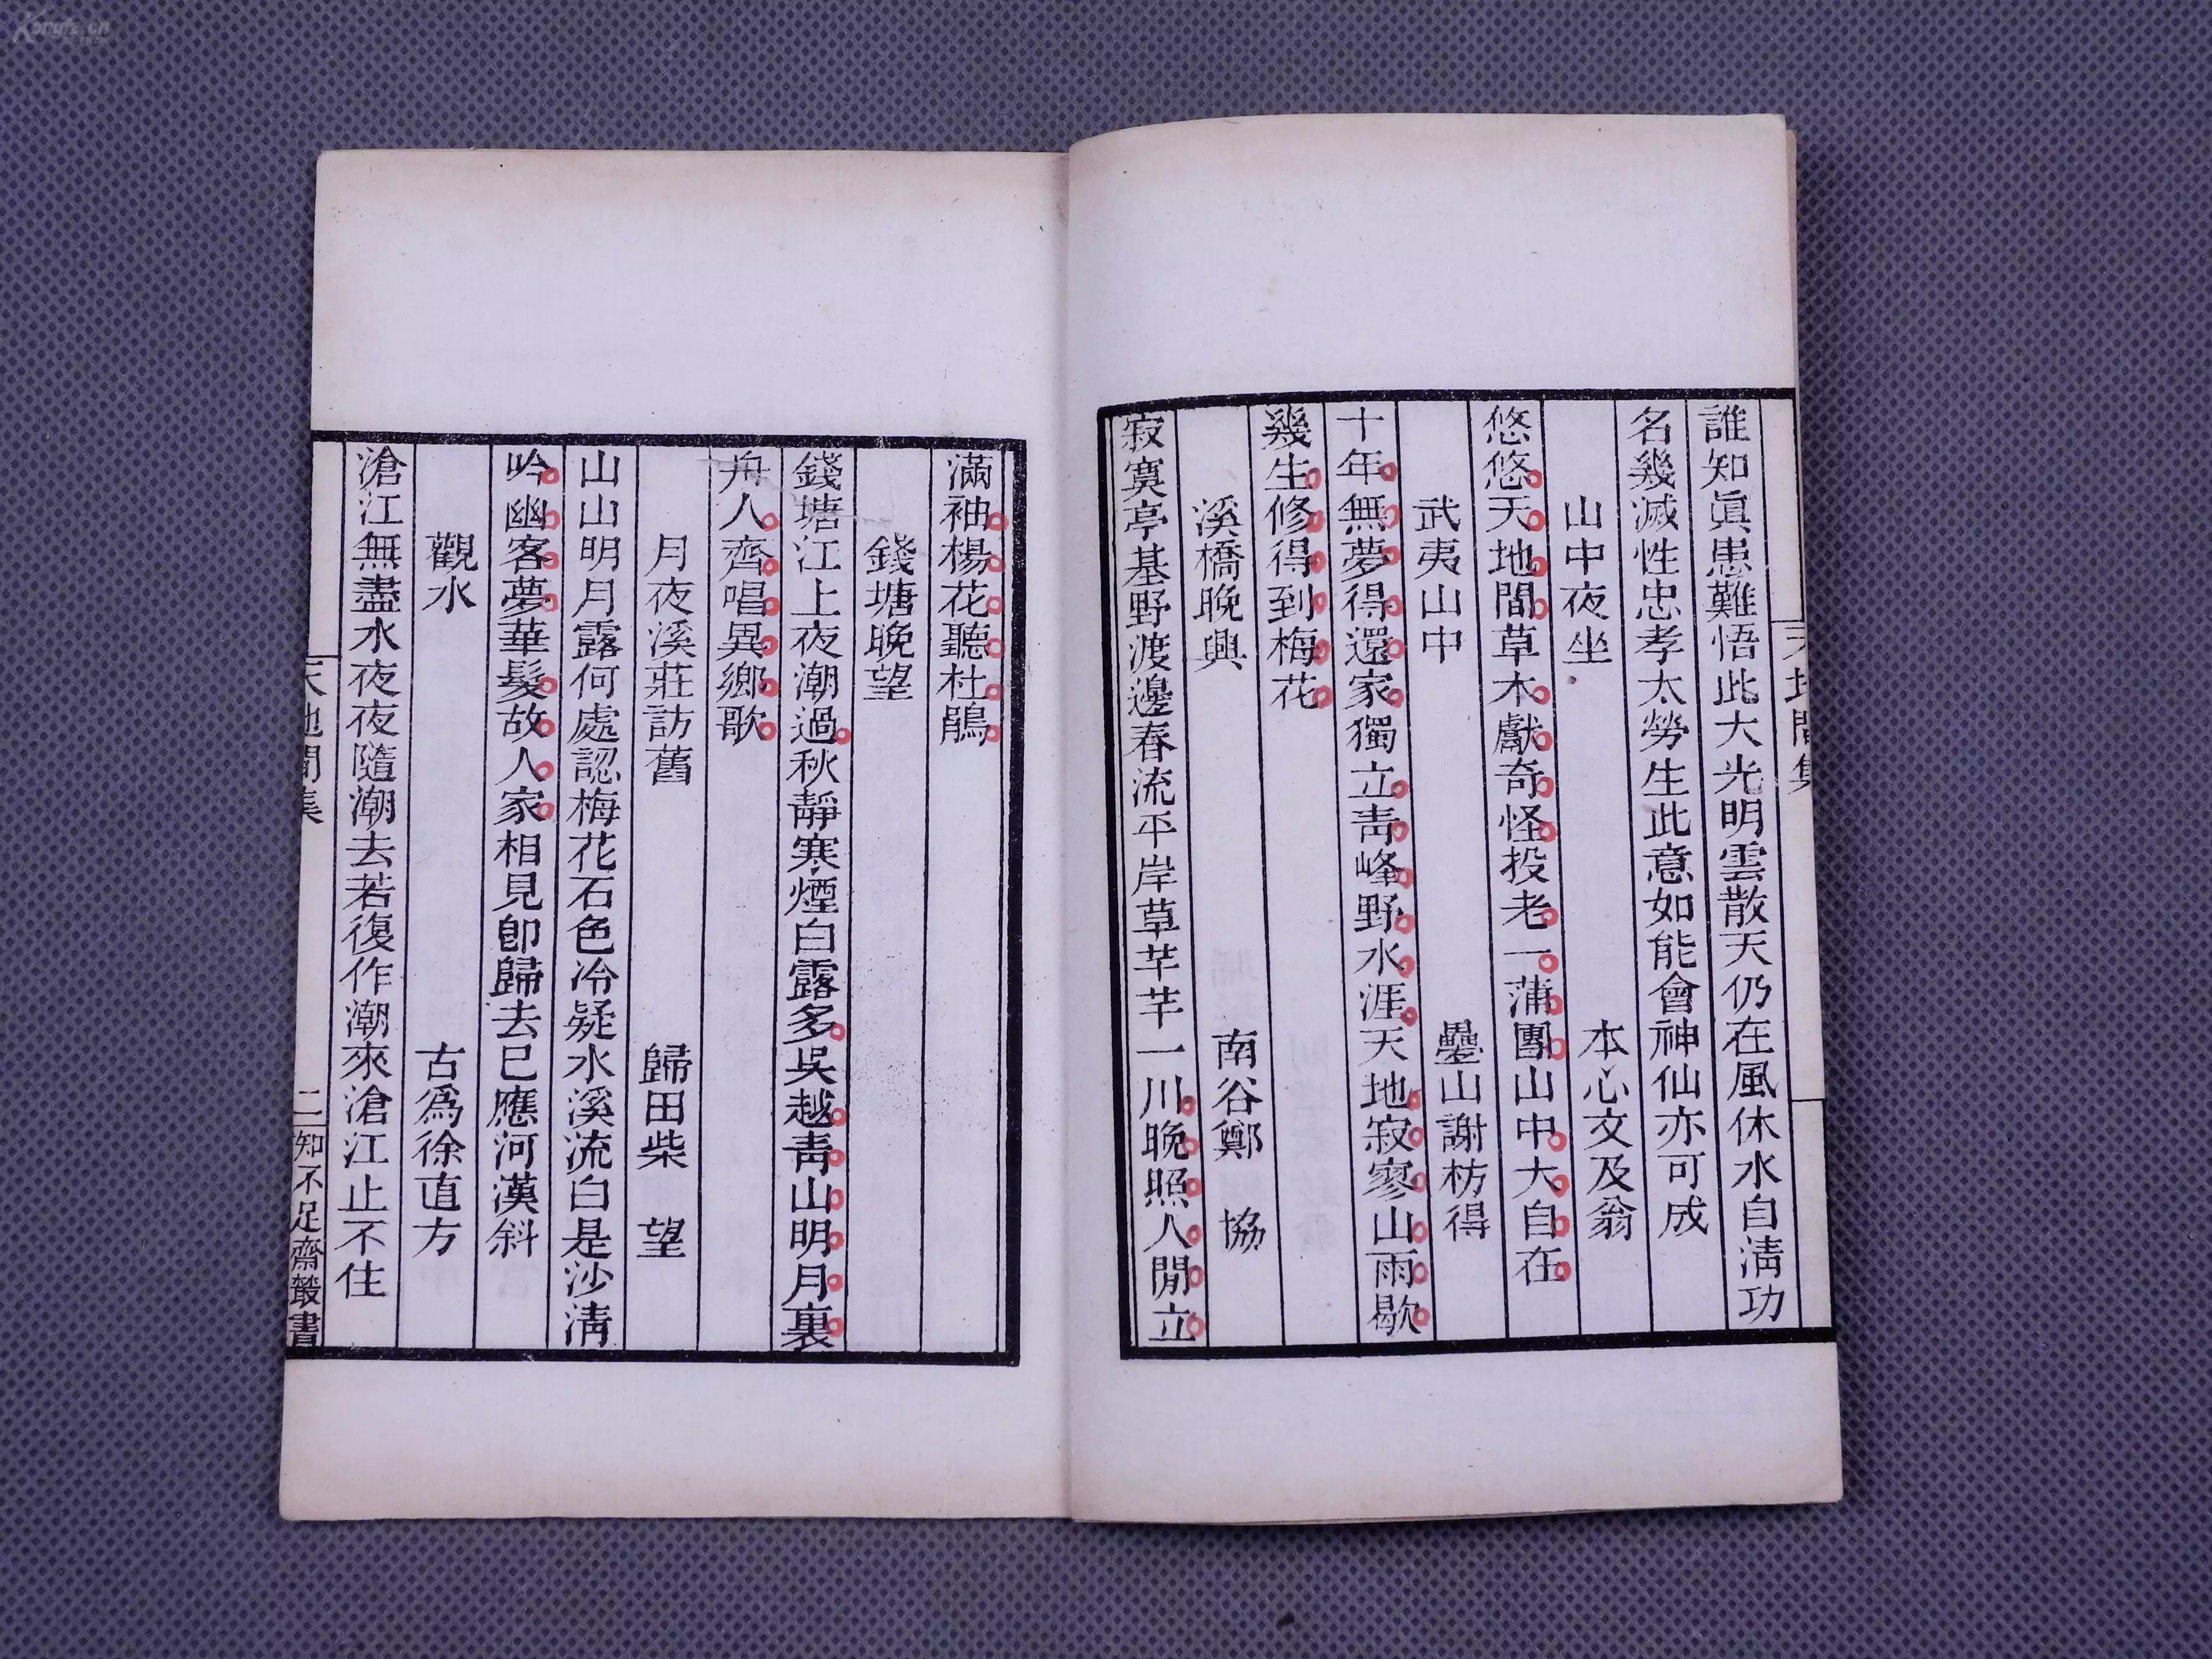 誰知眞患難悟此大光明雲散天仍在風休水自淸功
名幾滅性忠孝太勞生此意如能會神仙亦可成
山中夜坐 本心文及翁
悠悠天地間草木獻奇怪投老一蒲團山中大自在
武夷山中 疊山謝枋得
十年無夢得還家獨立靑峰野水涯天地寂寥山雨歇
幾生修得到梅花
溪橋晚興 南谷鄭 協
寂寞亭基野渡邊春流平岸草芊芊一川晚照人閒立
滿袖楊花聽杜鵑
錢塘晚望
錢塘江上夜潮過秋靜寒煙白露多吳越靑山明月裏
舟人齊唱異鄉歌
月夜溪莊訪舊 歸田柴 望
山山明月露何處認梅花石色冷疑水溪流白是沙淸
吟幽客夢華髮故人家相見卽歸去已應河漢斜
觀水 古爲徐直方
滄江無盡水夜夜隨潮去若復作潮來滄江止不住
天地間集
二
知不足齋叢書
天地間集
Kongfz.cn